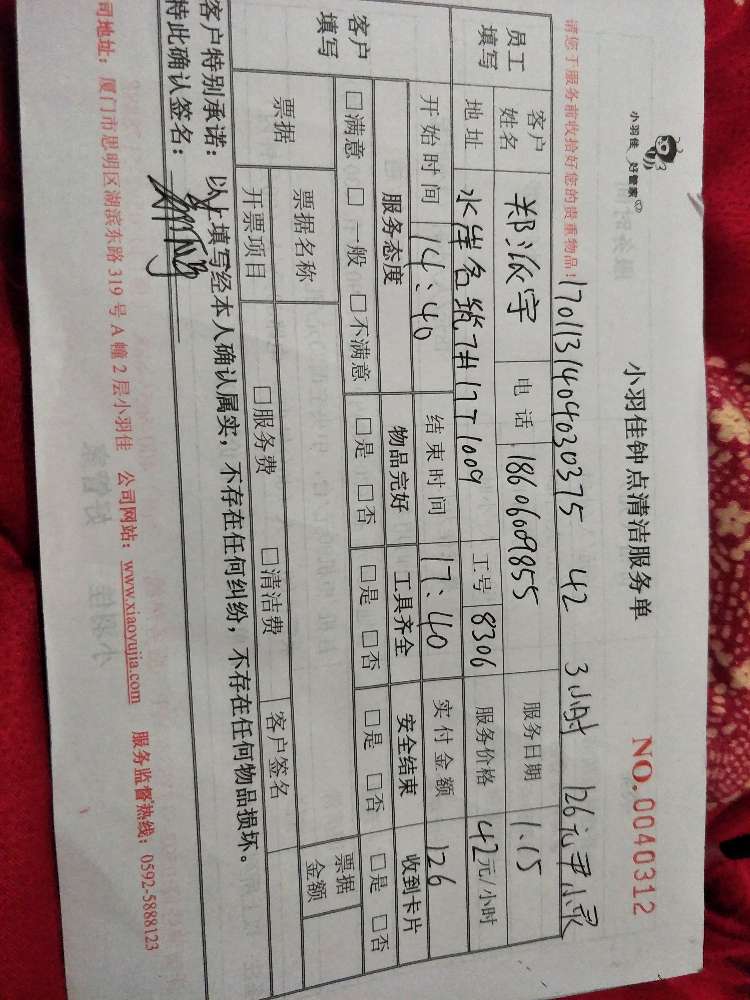 小羽佳 好管家
小羽佳钟点清洁服务单
NO.0040312
请您于服务前收拾好您的贵重物品！
170113140404030375 42 3小时 126元 尹小灵
员工填写 客户姓名 郑派宇 电话 18606009855 服务日期 1.15
地址 水岸名筑7#17T1009 工号 8306 服务价格 42元/小时
客户填写 开始时间 14:40 结束时间 17:40 实付金额 126
服务态度 物品完好 工具齐全 安全结束 收到卡片
□满意 □一般 □不满意 □是 □否 □是 □否 □是 □否 □是 □否
票据 票据名称 客户签名 票据金额
开票项目 □服务费 □清洁费
客户特别承诺：以上填写经本人确认属实，不存在任何纠纷，不存在任何物品损坏。
特此确认签名：
司地址：厦门市思明区湖滨东路319号A幢2层小羽佳 公司网站：www.xiaoyujia.com 服务监督热线：0592-5888123